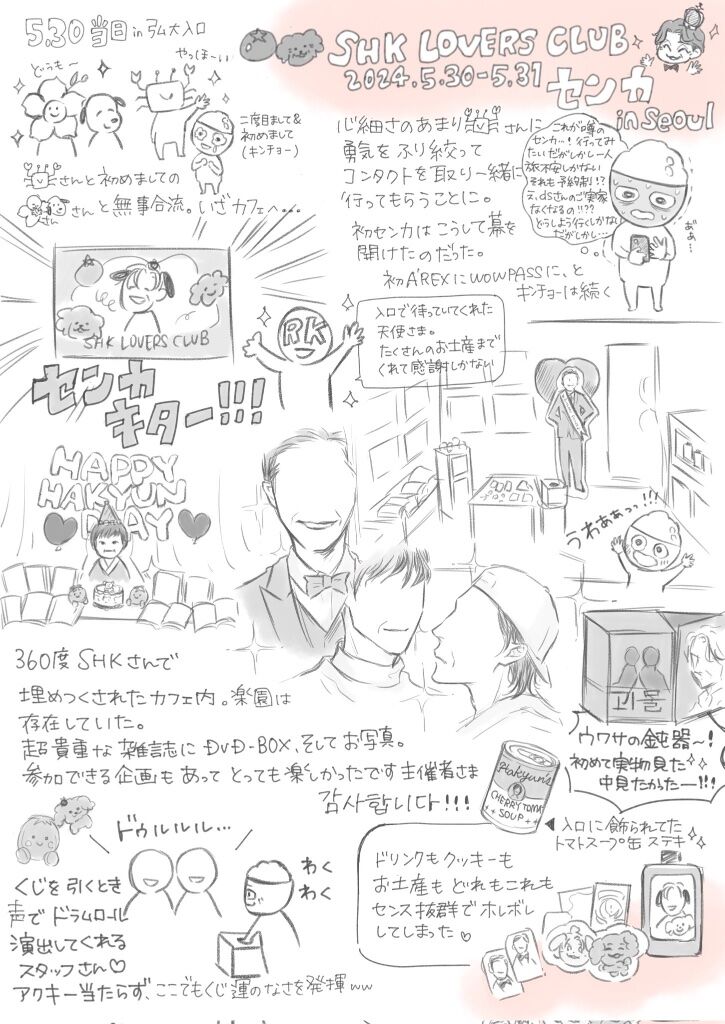 5.30 当日 in 弘大入口
SHK LOVERS CLUB
2024.5.30-5.31
センカ
in Seoul
どうも〜
やっほーい
二度目まして&
初めまして
(キンチョー)
さんと初めましての
さん
さんと無事合流。いざカフェへ…
心細さのあまり
さんに
勇気をふり絞って
コンタクトを取り一緒に
行ってもらうことに。
初センカはこうして幕を
開けたのだった。
初A'REXにWOWPASSに、と
キンチョーは続く
これが噂の
センカ…!行ってみ
たいだがしかし一人
旅不安しかない
それも予約制!?
え、dsさんのご実家
なくなるの!!??
どうしよう行くしかな
だがしかし…
SHK LOVERS CLUB
RK
センカ
キター!!!
入口で待っていてくれた
天使さま。
たくさんのお土産まで
くれて感謝しかない
HAPPY
HAKYUN
DAY
うわああっっ!!!
360度 SHKさんで
埋めつくされたカフェ内。楽園は
存在していた。
超貴重な雑誌にDVD-BOX、そしてお写真。
参加できる企画もあってとっても楽しかったです主催者さま
감사합니다!!!
괴물
ウワサの鈍器〜!
初めて実物見た
中見たかったー!!!
Hakyun's
CHERRY TOMA
SOUP
◀入口に飾られてた
トマトスープ缶 ステキ
ドゥルルルル…
わく
わく
くじを引くとき
声でドラムロール
演出してくれる
スタッフさん♡
アクキー当たらず、ここでもくじ運のなさを発揮ww
ドリンクもクッキーも
お土産もどれもこれも
センス抜群でホレボレ
してしまった♡